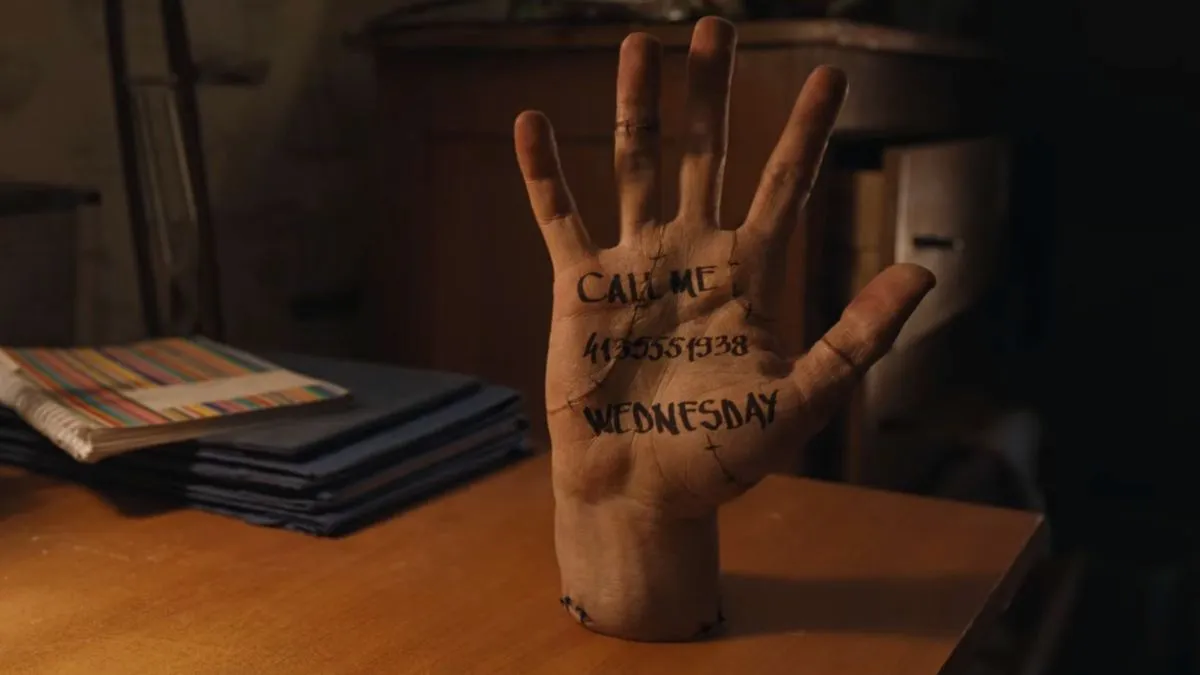 CALL ME :
4135551938
WEDNESDAY